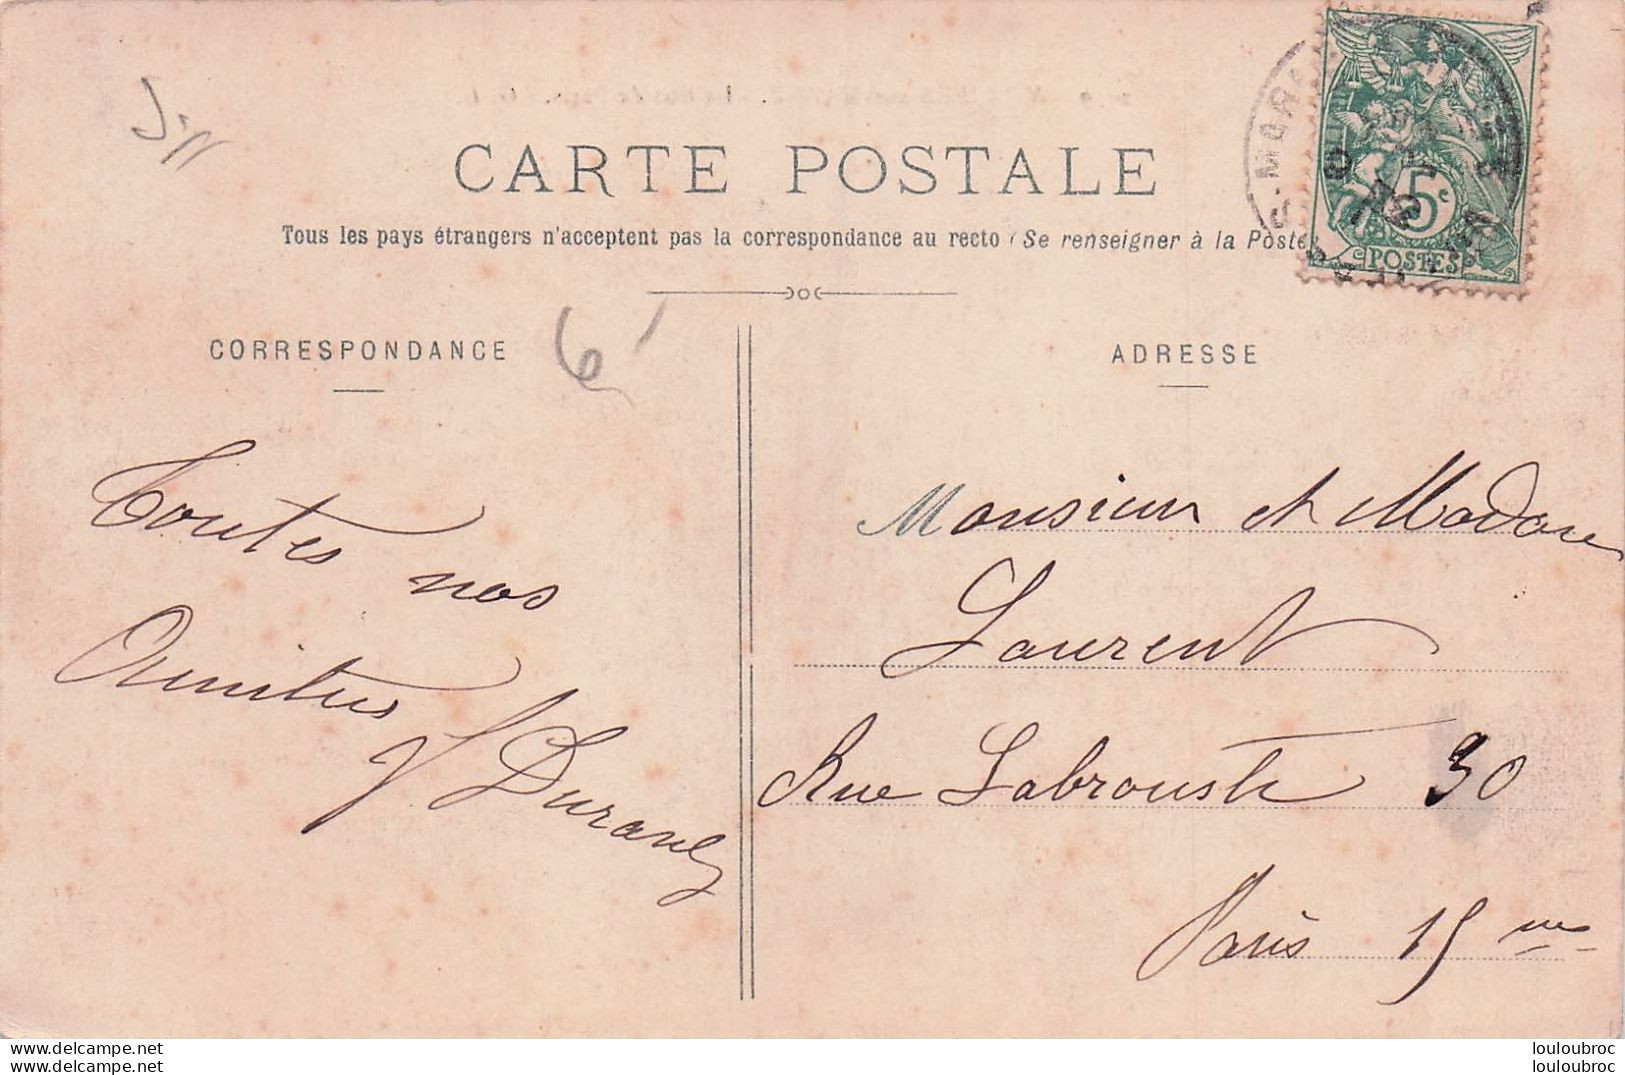 CARTE POSTALE
Tous les pays étrangers n'acceptent pas la correspondance au recto (Se renseigner à la Poste
5c
POSTES
CORRESPONDANCE
6
ADRESSE
Toutes nos
Amitiés
Durand
Monsieur et Madame
Laurent
Rue Labrouste 30
Paris 15me
www.delcampe.net
louloubroc
louloubroc